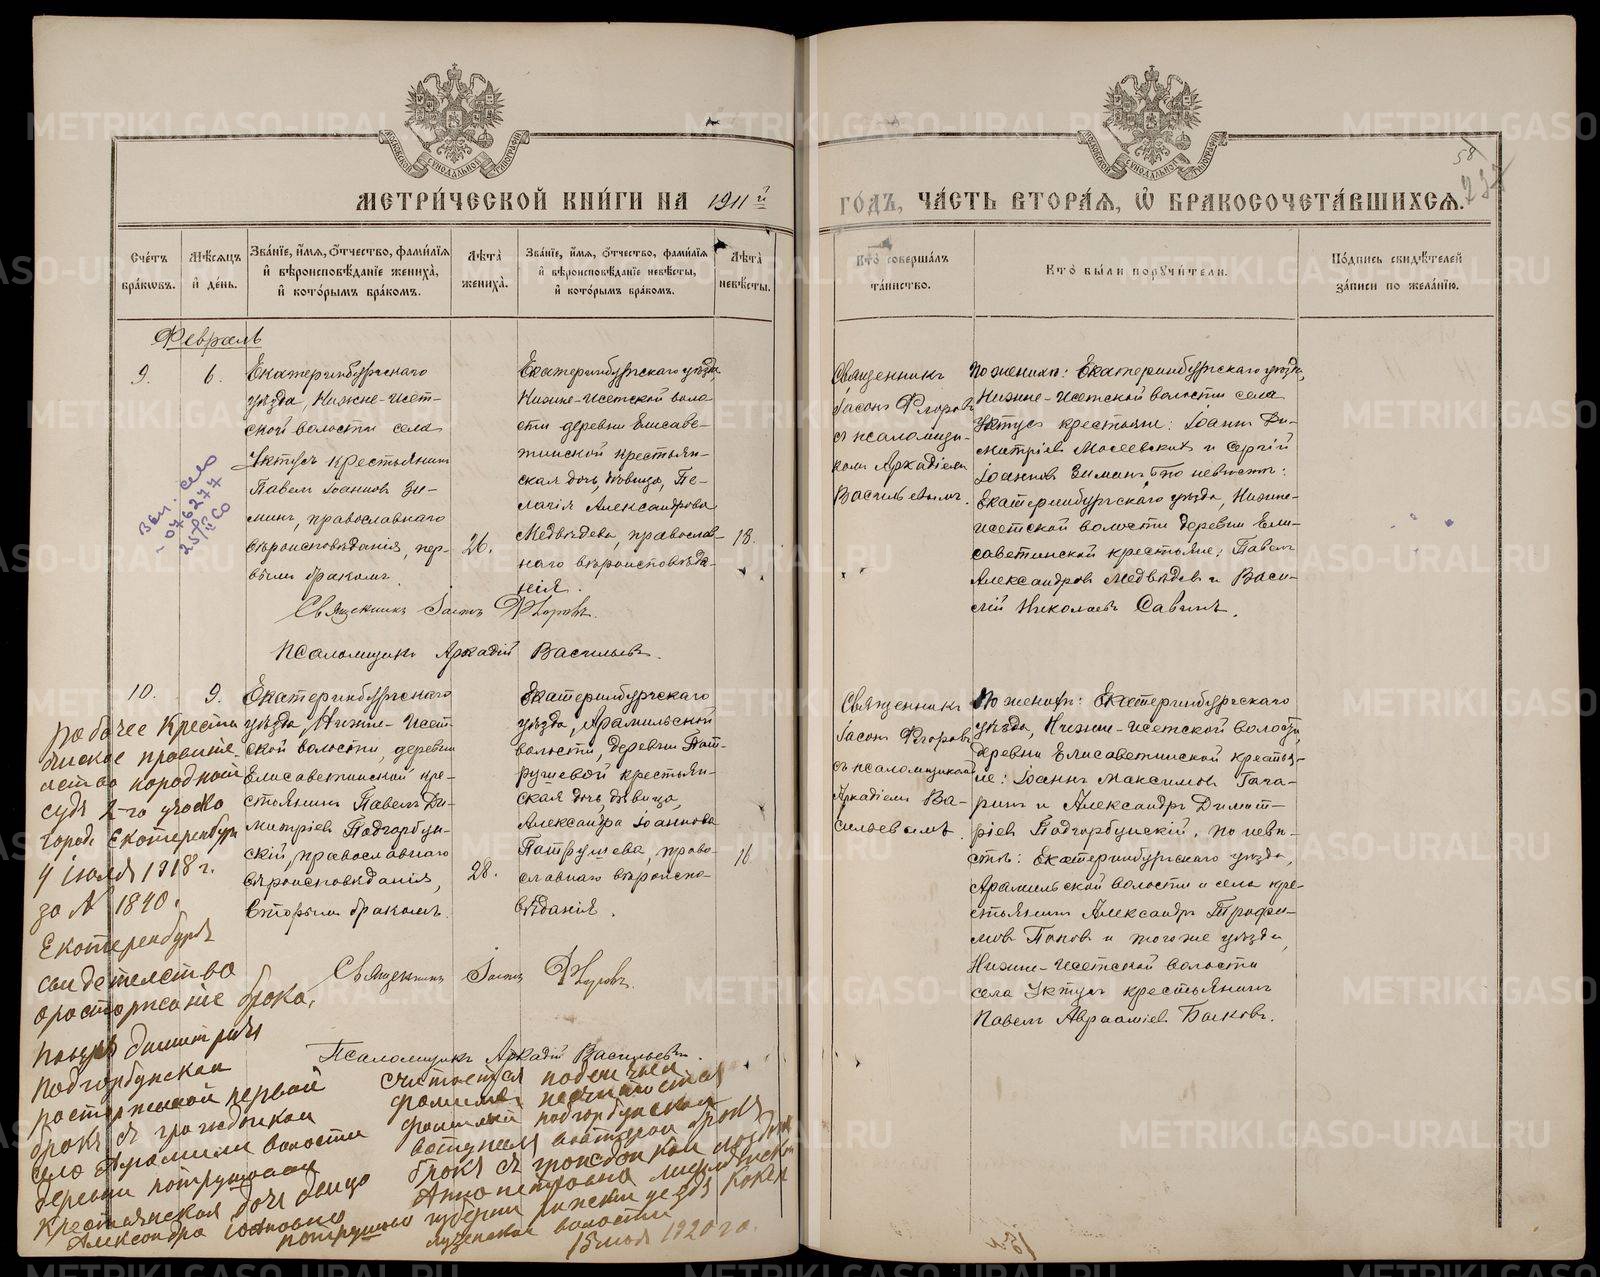 МЕТРИ́ЧЕСКОЙ КНИ́ГИ НА 1911й ГО́ДЪ, ЧА́СТЬ ВТОРА́Я, Ѡ҆ БРАКОСОЧЕТА́ВШИХСЯ.
58
Сче́тъ бра́ковъ.
Мѣ́сяцъ и҆ де́нь.
Зва́нїе, и҆́мя, ѻ҆́тчество, фами́лїя и҆ вѣроисповѣ́данїе жениха̀, и҆ кото́рымъ бра́комъ.
Лѣ́та жениха̀.
Зва́нїе, и҆́мя, ѻ҆́тчество, фами́лїя и҆ вѣроисповѣ́данїе невѣ́сты, и҆ кото́рымъ бра́комъ.
Лѣ́та невѣ́сты.
Кто̀ соверша́лъ та́инство.
Кто̀ бы́ли поручи́тели.
По́дпись свидѣ́телей за́писи по жела́нїю.
Февраль
9.
6.
Екатеринбургскаго
уѣзда, Нижне-Исет-
ской волости села
Уктусъ крестьянинъ
Павелъ Іоанновъ Зи-
минъ, православнаго
вѣроисповѣданія, пер-
вымъ бракомъ.
26.
Екатеринбургскаго уѣзда
Нижне-Исетской воло
сти деревни Елисаве-
тинской крестьян-
ская дочь, дѣвица, Пе-
лагія Александрова
Медвѣдева, православ-
наго вѣроисповѣда-
нія.
18.
Священникъ
Іасонъ Флоровъ
съ псаломщи-
комъ Аркадіемъ
Васильевымъ.
По женихѣ: Екатеринбургскаго уѣзда,
Нижне-Исетской волости села
Уктуса крестьяне: Іоаннъ Ди-
митріевъ Мосеевскихъ и Сергій
Іоанновъ Зиминъ, по невѣстѣ:
Екатеринбургскаго уѣзда, Нижне-
Исетской волости деревни Ели-
саветинской крестьяне: Павелъ
Александровъ Медвѣдевъ и Васи-
лій Николаевъ Савинъ.
Священникъ Іасонъ Флоровъ.
Псаломщикъ Аркадій Васильевъ.
10.
9.
Екатеринбургскаго
уѣзда, Нижне-Исет-
ской волости, деревни
Елисаветинской кре-
стьянинъ Павелъ Ди-
митріевъ Подгорбун-
скій, православнаго
вѣроисповѣданія,
вторымъ бракомъ.
28.
Екатеринбургскаго
уѣзда, Арамильской
волости, деревни Пат-
рушевой крестьян-
ская дочь, дѣвица,
Александра Іоаннова
Патрушева, право-
славнаго вѣроиспо-
вѣданія.
16
Священникъ
Іасонъ Флоровъ
съ псаломщикомъ
Аркадіемъ Ва-
сильевымъ.
По женихѣ: Екатеринбургскаго
уѣзда, Нижне-Исетской волости,
деревни Елисаветинской крестья-
не: Іоаннъ Максимовъ Гага-
ринъ и Александръ Димит-
ріевъ Подгорбунскій, по невѣ-
стѣ: Екатеринбургскаго уѣзда,
Арамильской волости и села кре-
стьянинъ Александръ Трофи-
мовъ Поповъ и того же уѣзда,
Нижне-Исетской волости
села Уктусъ крестьянинъ
Павелъ Авраамiевъ Бычковъ.
Священникъ Іасонъ Флоровъ.
Псаломщикъ Аркадій Васильевъ.
076277
рабочее Крестья
судъ 2-го участка
город Екатеренбург
4 іюля 1918 г.
за № 1840.
Екатеренбургъ
свидетелство
о расторжение брока,
Подгорбунскаи
брокъ съ гражданкой
село Арамили волости
деревни потрушовой
Крестьянская дочь девица
Александра Іоановно
потрушово
фамилией подгорбунскою
брокъ съ гражданкой
Анна петровна
губерни
волости
15 мая 1920 го.